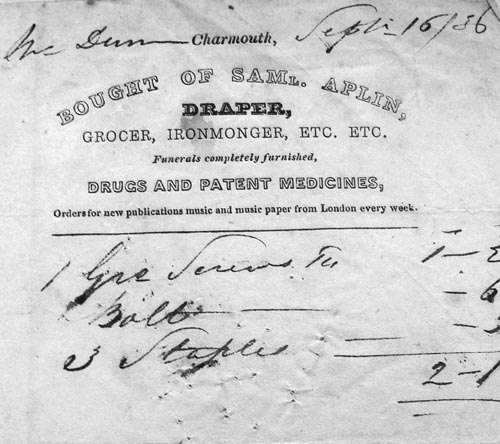 Mr Dunn Charmouth, Sept 16/36
BOUGHT OF SAML. APLIN,
DRAPER,
GROCER, IRONMONGER, ETC. ETC.
Funerals completely furnished,
DRUGS AND PATENT MEDICINES,
Orders for new publications music and music paper from London every week.
1 Gro Screws 1-
Bolt -6
3 Staples
2-1